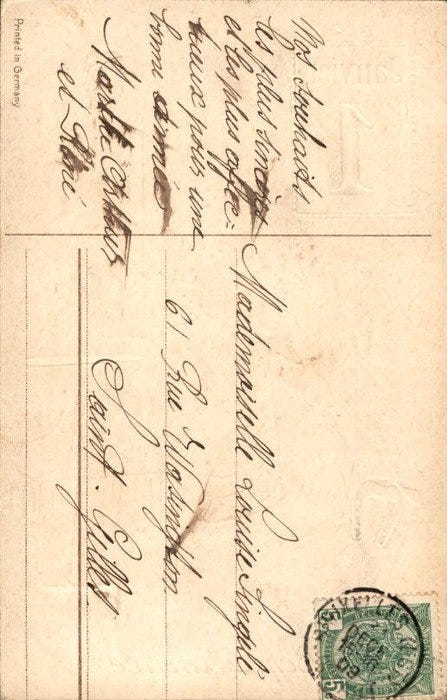 Nos souhaits
les plus sincères
et les plus affec-
tueux pour une
bonne année
Marthe, Arthur
et René
Mademoiselle Louise
61 Rue Washington
Saint-Gilles
Printed in Germany
Janvier
1
5